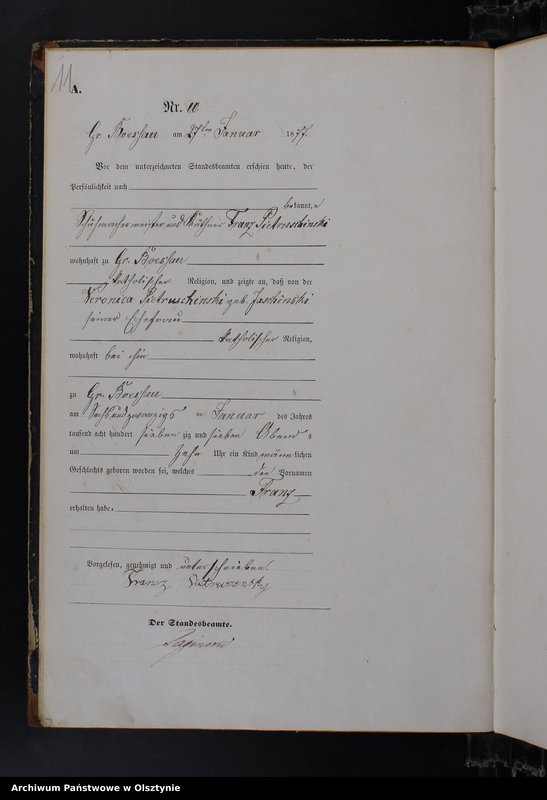 11
A.
Nr. 10
Gr. Boessau am 27ten Januar 1877.
Vor dem unterzeichneten Standesbeamten erschien heute, der
Persönlichkeit nach
bekannt, e
Schuhmachermeister und Käthner Franz Pietruschinski
wohnhaft zu Gr. Boessau
katholischer Religion, und zeigte an, daß von der
Veronica Pietruschinski geb. Jaschinski
seiner Ehefrau
katholischer Religion,
wohnhaft bei ihm
zu Gr. Boessau
am Sechsundzwanzigs ten Januar des Jahres
tausend acht hundert sieben zig und sieben Abends
um Zehn Uhr ein Kind männlichen
Geschlechts geboren worden sei, welches den Vornamen
Franz
erhalten habe.
Vorgelesen, genehmigt und unterschrieben.
Franz Pietruszensky
Der Standesbeamte.
Archiwum Państwowe w Olsztynie